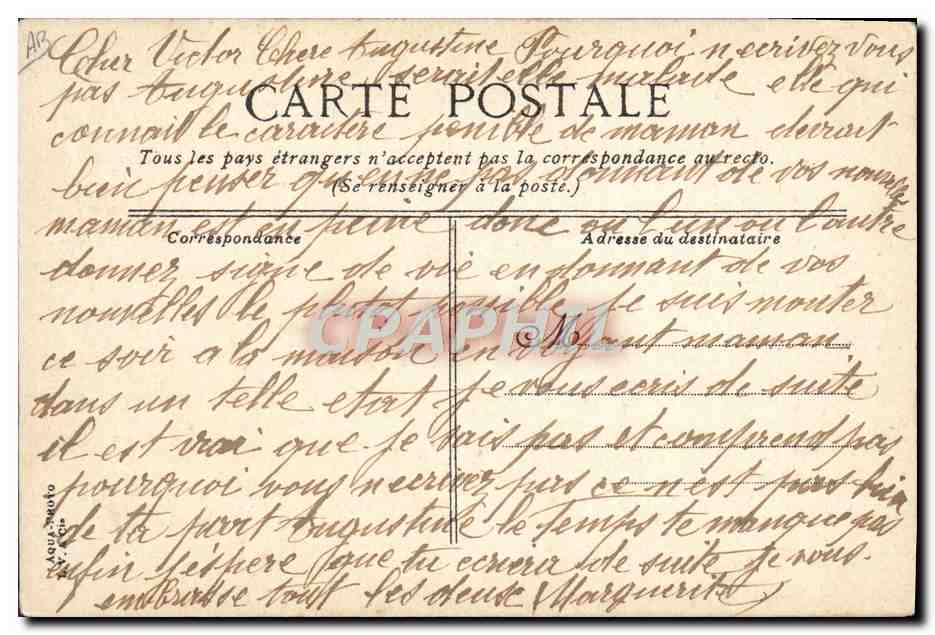 AB
Cher Victor Chere Augustine Pourquoi n ecrivez vous
pas Augustine serait elle malade elle qui
CARTE POSTALE
connait le caractere penible de maman devrait
Tous les pays étrangers n'acceptent pas la correspondance au recto.
bien penser qu en ne pas donnant de vos nouvelles
(Se renseigner à la poste.)
maman est en peine donc ou l un ou l autre
Correspondance
Adresse du destinataire
donnez signe de vie en donnant de vos
nouvelles le plutot possible je suis monter
CPAPH 1
M
ce soir a la maison en voyant maman
dans un telle etat je vous ecris de suite
il est vrai que je vais pas et comprend pas
pourquoi vous n ecrivez pas ce n est pas bien
de ta part Augustine le temps te manque pas
enfin j espere que tu ecrira de suite je vous
embrasse tout les deuse Marguerite
AQUA-PHOTO
L. V. & Cie